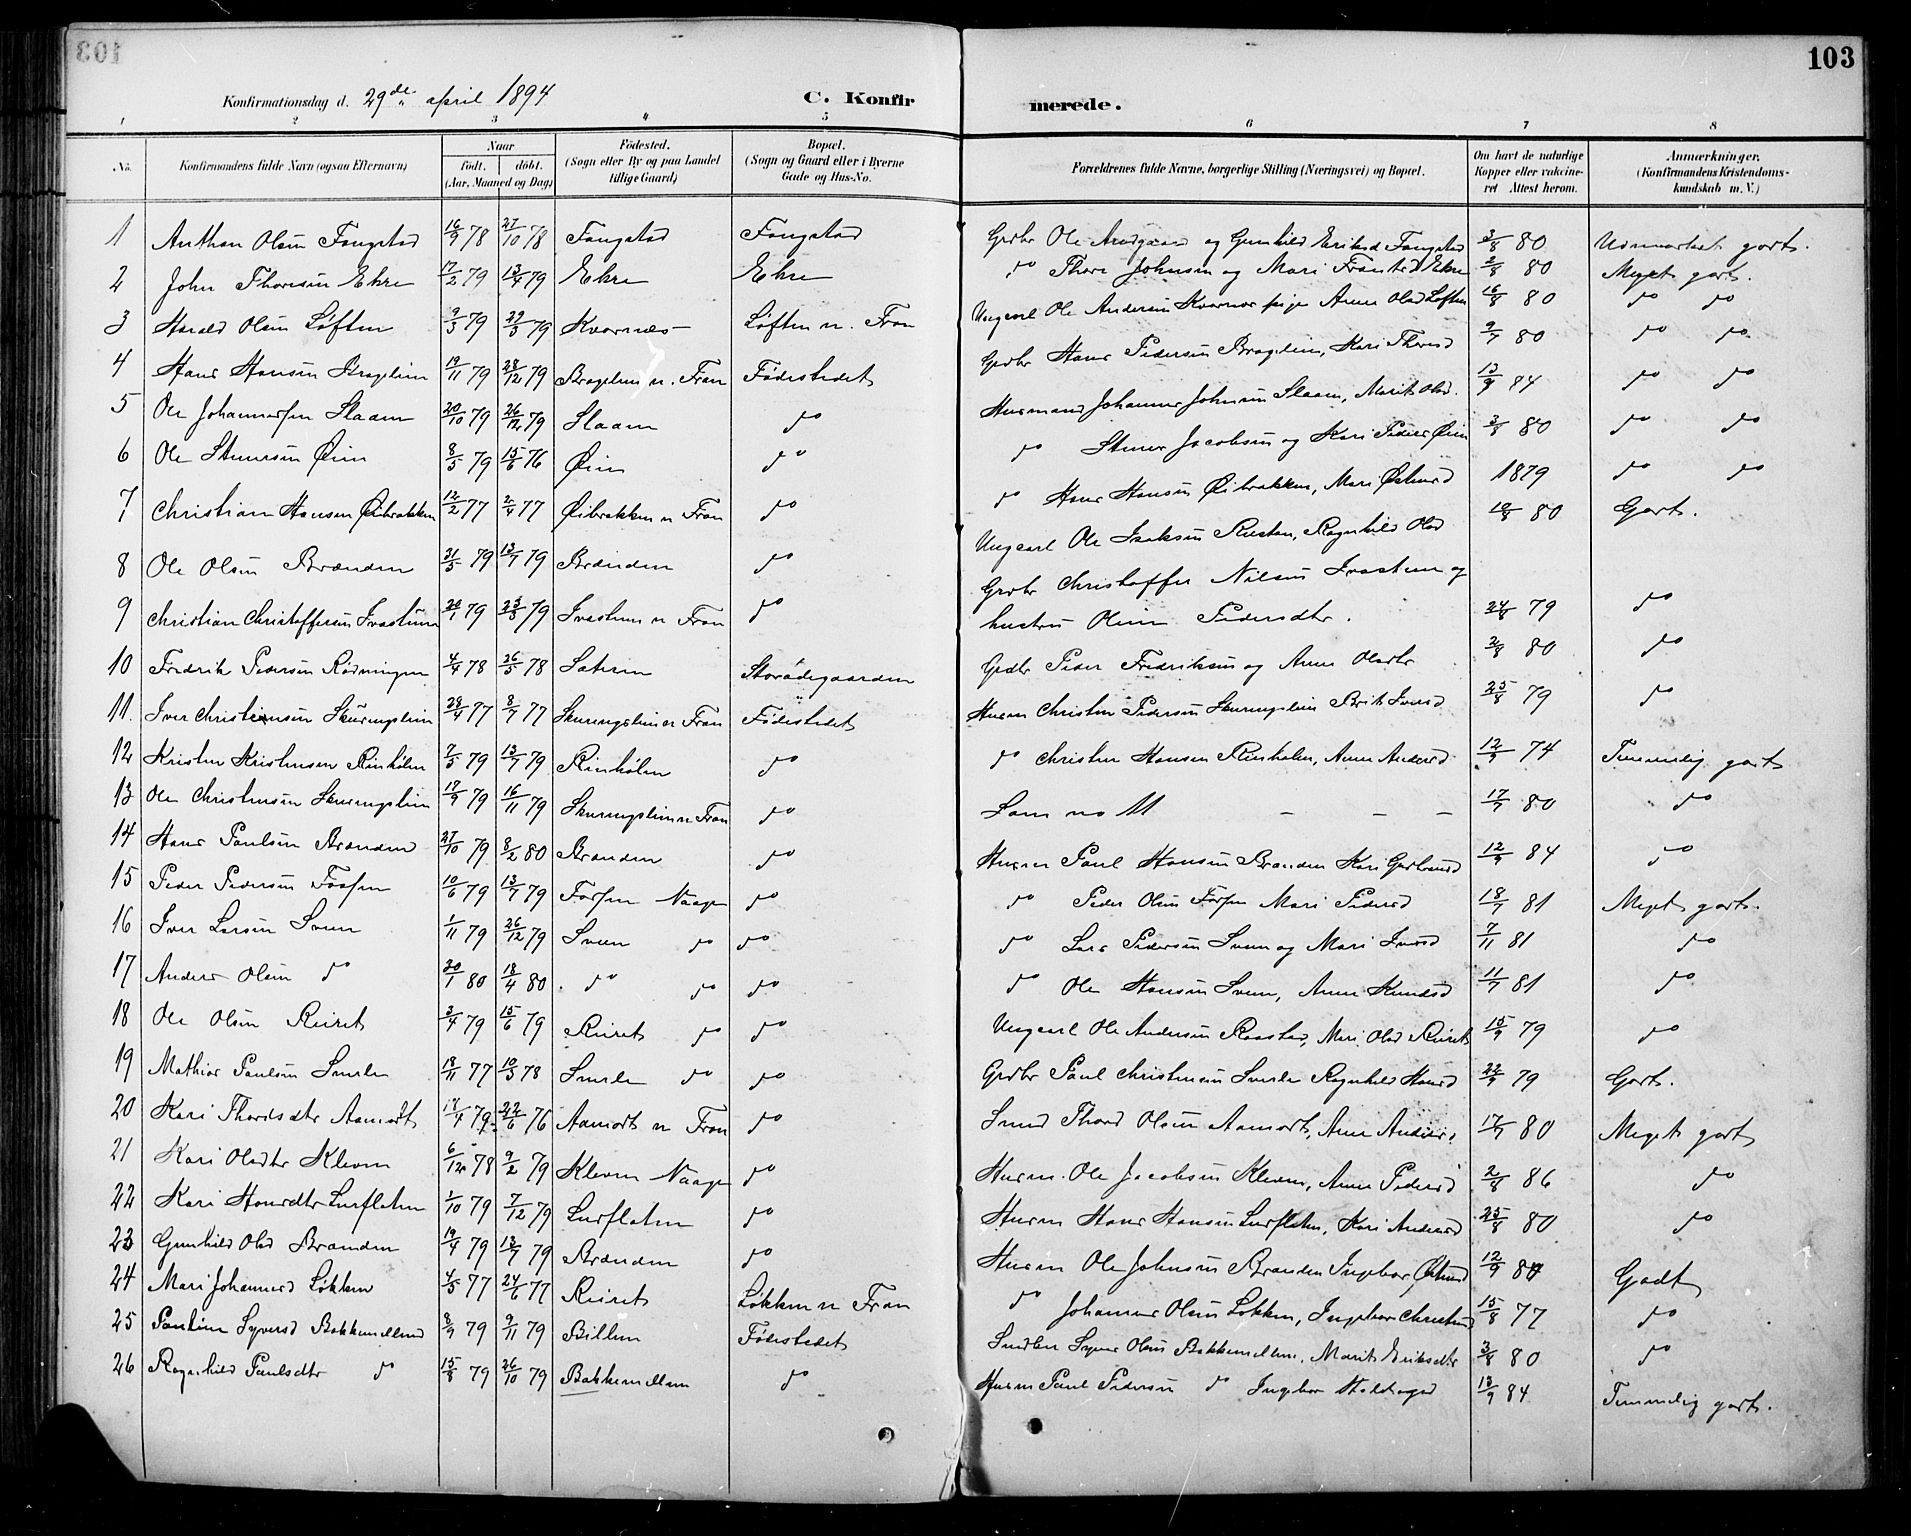 103
Konfirmationsdag d. 29de april 1894
C. Konfir merede.
1 2 3 4 5 6 7 8
No.
Konfirmandens fulde Navn (ogsaa Efternavn)
Naar
født. døbt.
(Aar, Maaned og Dag)
Fødested.
(Sogn eller By og paa Landet
tillige Gaard)
Bopæl.
(Sogn og Gaard eller i Byerne
Gade og Hus-No.
Forældrenes fulde Navne, borgerlige Stilling (Næringsvei) og Bopæl.
Om havt de naturlige
Kopper eller vakcine-
ret Attest herom.
Anmærkninger.
(Konfirmandens Kristendoms-
kundskab m. V.)
1 Anthon Olsen Fougstad 16/9 78 27/10 78 Fougstad Fougstad Grdbr Ole og Gunhild Eriksd Fougstad 3/8 80 Udmærket godt.
2 John Thoresen Ekre 17/2 79 13/4 79 Ekre Ekre do Thore Johnsen og Mari Frantsd Ekre 2/8 80 Meget godt.
3 Harald Olsen Løften 9/3 79 29/3 79 Kvarnæs Løften n. Fron Ungcarl Ole Andersen Kvarnæs pige Anne Olsd Løften 16/8 80 do do
4 Hans Hansen Bragelien 19/11 79 28/12 79 Bragelien n. Fron Fødestedet Grdbr Hans Pedersen Bragelien, Kari Thoresd 9/7 80 do do
5 Ole Johannessen Slaaen 20/10 79 26/12 79 Slaaen do Husmand Johannes Johnsen Slaaen, Marit Olsd. 13/9 84 do do
6 Ole Stenersen Øien 8/5 79 15/6 76 Øien do do Stener Jacobsen og Kari Pedersd Øien 3/8 80 do do
7 Christian Hansen Øibrækken 12/2 77 2/4 77 Øibrækken n Fron do do Hans Hansen Øibrækken, Mari Østensd 1879 do do
8 Ole Olsen Brænden 31/5 79 13/7 79 Brænden do Ungcarl Ole Isaksen Rusten, Ragnhild Olsd 18/8 80 Godt.
9 Christian Christoffersen Ivastuen 20/1 79 23/3 79 Ivastuen n Fron do Grdbr Christoffer Nilsen Ivastuen og
hustru Oline Pedersdtr. 24/8 79 do
10 Fredrik Pedersen Rødningen 4/4 78 26/5 78 Sætren Storødegaarden Grdbr Peder Fredriksen og Anne Olsdtr 2/8 80 do
11. Iver Christensen Skuringslien 28/4 77 8/7 77 Skuringslien n Fron Fødestedet Husm Christen Pedersen Skuringslien Brit Iversd 25/8 79 do
12 Kristen Kristensen Rinhølen 7/5 79 13/7 79 Rinhølen do do Christen Hansen Rinhølen, Anne Andersd 12/9 74 Temmelig godt
13 Ole Christensen Skuringslien 17/9 79 16/11 79 Skuringslien n Fron do Som no 11 - - - 17/7 80 do
14 Hans Paulsen Brænden 27/10 79 8/2 80 Brænden do Husm Paul Hansen Brænden Kari Gudbrandsd 12/9 84 do
15 Peder Pedersen Fossen 10/6 79 13/7 79 Forsen Vaage do do Peder Olsen Forsen Mari Pedersd 18/7 81 Meget godt.
16 Iver Larsen Sveen 1/11 79 26/12 79 Sveen do do do Lars Pedersen Sveen og Mari Iversd 7/11 81 do
17 Anders Olsen do 20/1 80 18/4 80 do do do do Ole Hansen Sveen, Anne Knudsd 11/7 81 do
18 Ole Olsen Reiret 3/4 79 15/6 79 Reiret do do Ungcarl Ole Andersen Raastad, Mari Olsd Reiret 15/9 79 do
19 Mathias Paulsen Smrle 18/11 77 10/3 78 Smrle do do Grdbr Paul Christensen Smrle Ragnhild Hansd 22/9 79 Godt.
20 Kari Thordsdtr Aamodt 14/4 79 22/6 76 Aamodt n Fron do Smed Thord Olsen Aamodt, Anne Andersd 17/7 80 Meget godt
21 Kari Olsdtr Kleven 6/12 78 9/2 79 Kleven Vaage do Husm. Ole Jacobsen Kleven, Anne Pedersd 2/8 86 do
22 Kari Hansdtr Lurfloten 1/10 79 7/12 79 Lurfloten do Husm Hans Hansen Lurfloten, Kari Andersd 25/8 80 do
23 Gunhild Olsd Brænden 19/4 79 13/7 79 Brænden do Husm Ole Johnsen Brænden Ingebor Østensd 12/9 84 Godt
24 Mari Johannesd Løkken 4/5 77 24/6 77 Reiret Løkken n Fron do Johannes Olsen Løkken, Ingebor Christensd 15/8 77 do
25 Pauline Syversd Bakkemellem 8/9 79 9/11 79 Billen Fødestedet Syver Olsen Bakkemellem, Marit Eriksdtr 3/8 80 do
26 Ragnhild Paulsdtr do 15/8 79 26/10 79 Bakkemellem do Husm Paul Pedersen do Ingebor 13/9 84 Temmelig godt.